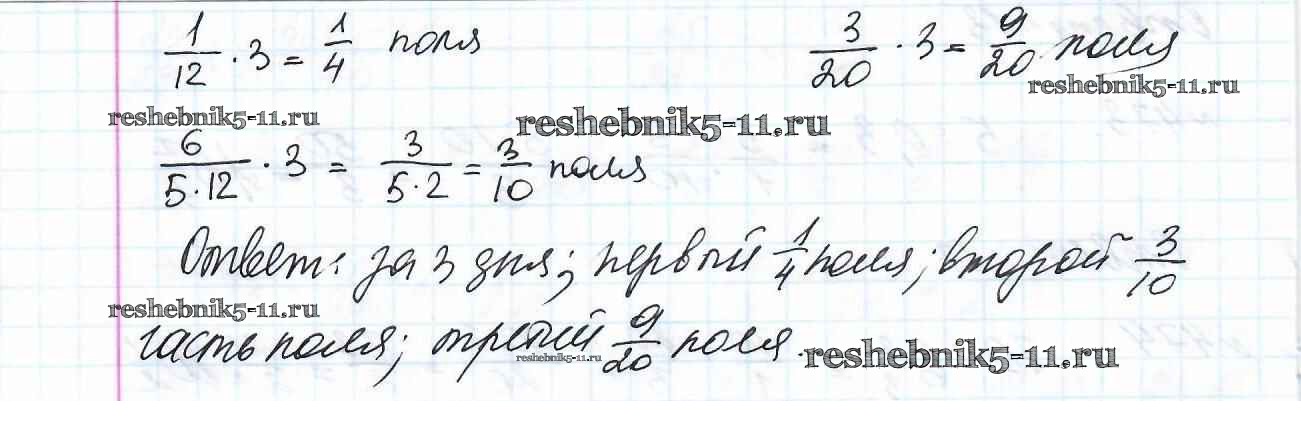 1/12 · 3 = 1/4 поля 3/20 · 3 = 9/20 поля
reshebnik5-11.ru reshebnik5-11.ru reshebnik5-11.ru
6/(5·12) · 3 = 3/(5·2) = 3/10 поля
Ответ: за 3 дня; первый 1/4 поля; второй 3/10
reshebnik5-11.ru
часть поля; третий 9/20 поля.
reshebnik5-11.ru reshebnik5-11.ru